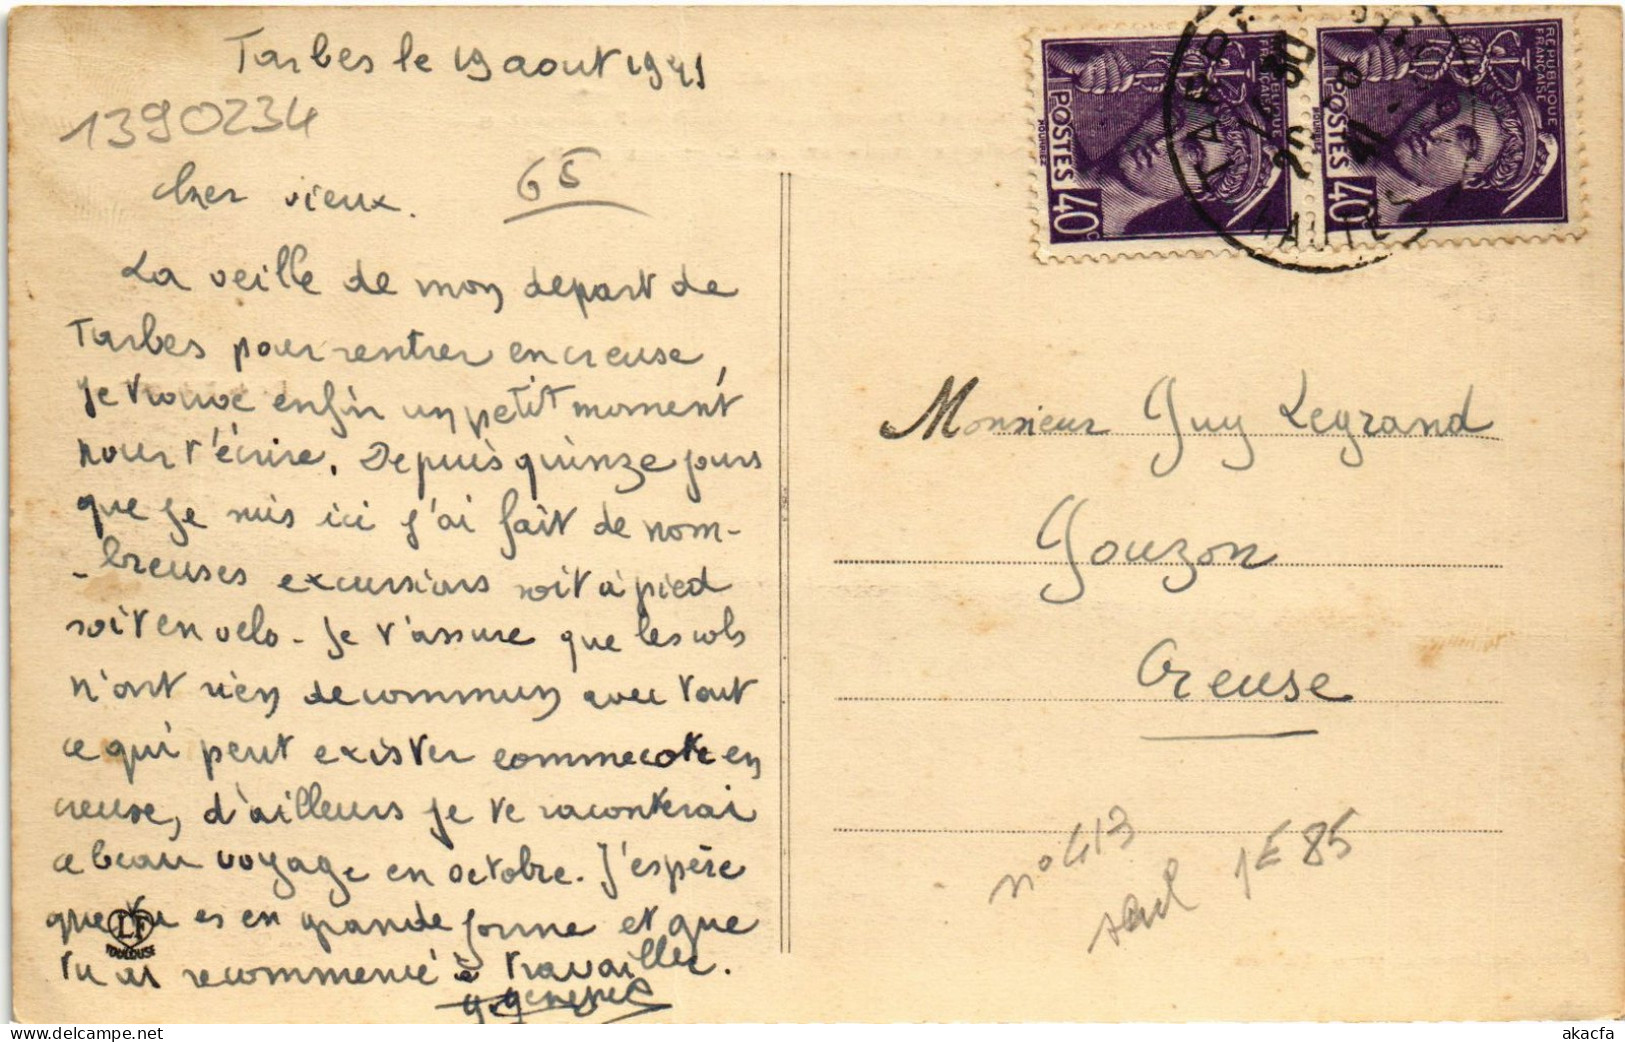 Tarbes le 19 aout 1941
1390234
65
cher vieux.
La veille de mon depart de
Tarbes pour rentrer en creuse,
je trouve enfin un petit moment
pour t'écrire. Depuis quinze jours
que je suis ici j'ai fait de nom-
-breuses excursions soit à pied
soit en velo - Je t'assure que les cols
n'ont rien de commun avec tout
ce qui peut exister comme cote en
creuse, d'ailleurs je te raconterai
ce beau voyage en octobre. J'espère
que tu es en grande forme et que
tu as recommencé à travailler.
LF
TOULOUSE
RÉPUBLIQUE
FRANÇAISE
POSTES
40c
MOURIEZ
RÉPUBLIQUE
FRANÇAISE
POSTES
40c
MOURIEZ
TARBES
HAUTES
Monsieur Guy Legrand
Gouzon
Creuse
n° 413
1E 85
akacfa